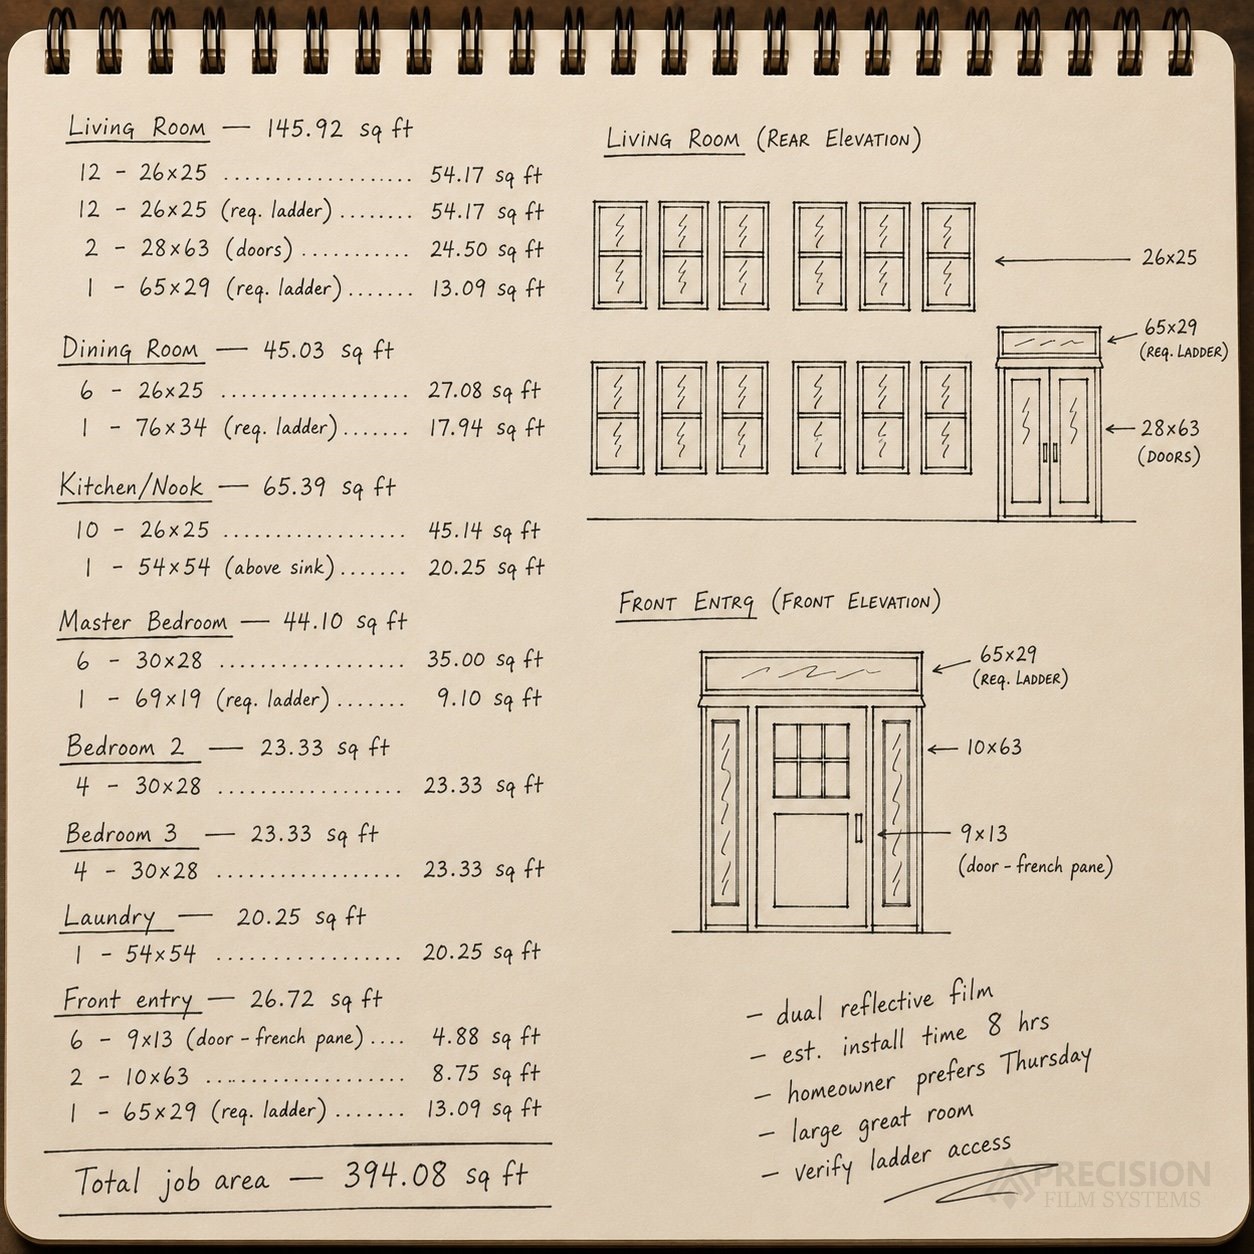 Living Room — 145.92 sq ft
12 - 26x25 .................... 54.17 sq ft
12 - 26x25 (req. ladder) ........ 54.17 sq ft
2 - 28x63 (doors) ........... 24.50 sq ft
1 - 65x29 (req. ladder) ....... 13.09 sq ft
Dining Room — 45.03 sq ft
6 - 26x25 ................... 27.08 sq ft
1 - 76x34 (req. ladder) ....... 17.94 sq ft
Kitchen/Nook — 65.39 sq ft
10 - 26x25 .................. 45.14 sq ft
1 - 54x54 (above sink) ....... 20.25 sq ft
Master Bedroom — 44.10 sq ft
6 - 30x28 .................. 35.00 sq ft
1 - 69x19 (req. ladder) ....... 9.10 sq ft
Bedroom 2 — 23.33 sq ft
4 - 30x28 .................. 23.33 sq ft
Bedroom 3 — 23.33 sq ft
4 - 30x28 .................. 23.33 sq ft
Laundry — 20.25 sq ft
1 - 54x54 .................. 20.25 sq ft
Front entry — 26.72 sq ft
6 - 9x13 (door - french pane) .... 4.88 sq ft
2 - 10x63 ................... 8.75 sq ft
1 - 65x29 (req. ladder) ....... 13.09 sq ft
Total job area — 394.08 sq ft
Living Room (Rear Elevation)
26x25
65x29
(Req. Ladder)
28x63
(Doors)
Front Entrq (Front Elevation)
65x29
(Req. Ladder)
10x63
9x13
(door - french pane)
- dual reflective film
- est. install time 8 hrs
- homeowner prefers Thursday
- large great room
- verify ladder access
PRECISION
FILM SYSTEMS